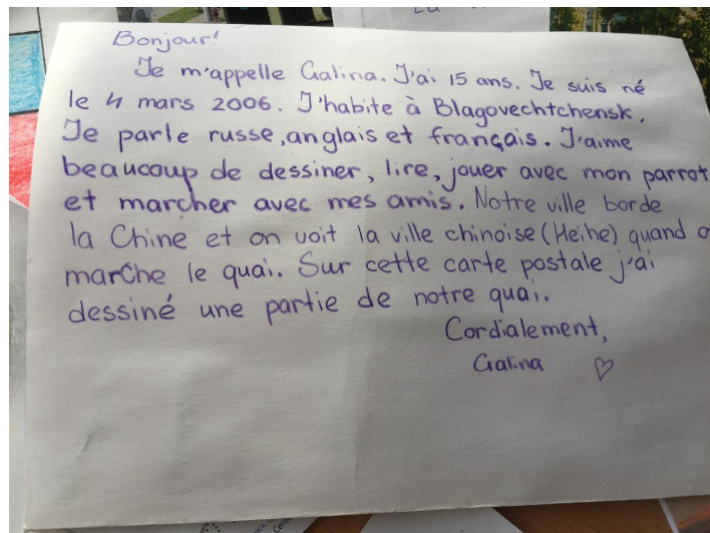 Bonjour!
Je m'appelle Galina. J'ai 15 ans. Je suis né
le 4 mars 2006. J'habite à Blagovechtchensk.
Je parle russe, anglais et français. J'aime
beaucoup de dessiner, lire, jouer avec mon parrot
et marcher avec mes amis. Notre ville borde
la Chine et on voit la ville chinoise (Heihe) quand
marche le quai. Sur cette carte postale j'ai
dessiné une partie de notre quai.
Cordialement,
Galina